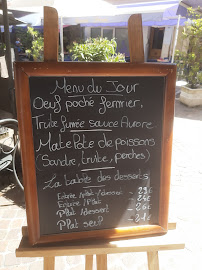 Menu du Jour
Oeuf poché fermier,
Truite fumée sauce Aurore
Mate Pote de poissons
(Sandre, truite, perches)
La tablée des desserts
Entrée/Plat/dessert - 29€
Entrée/Plat - 25€
Plat/dessert - 26€
Plat seul - 21€